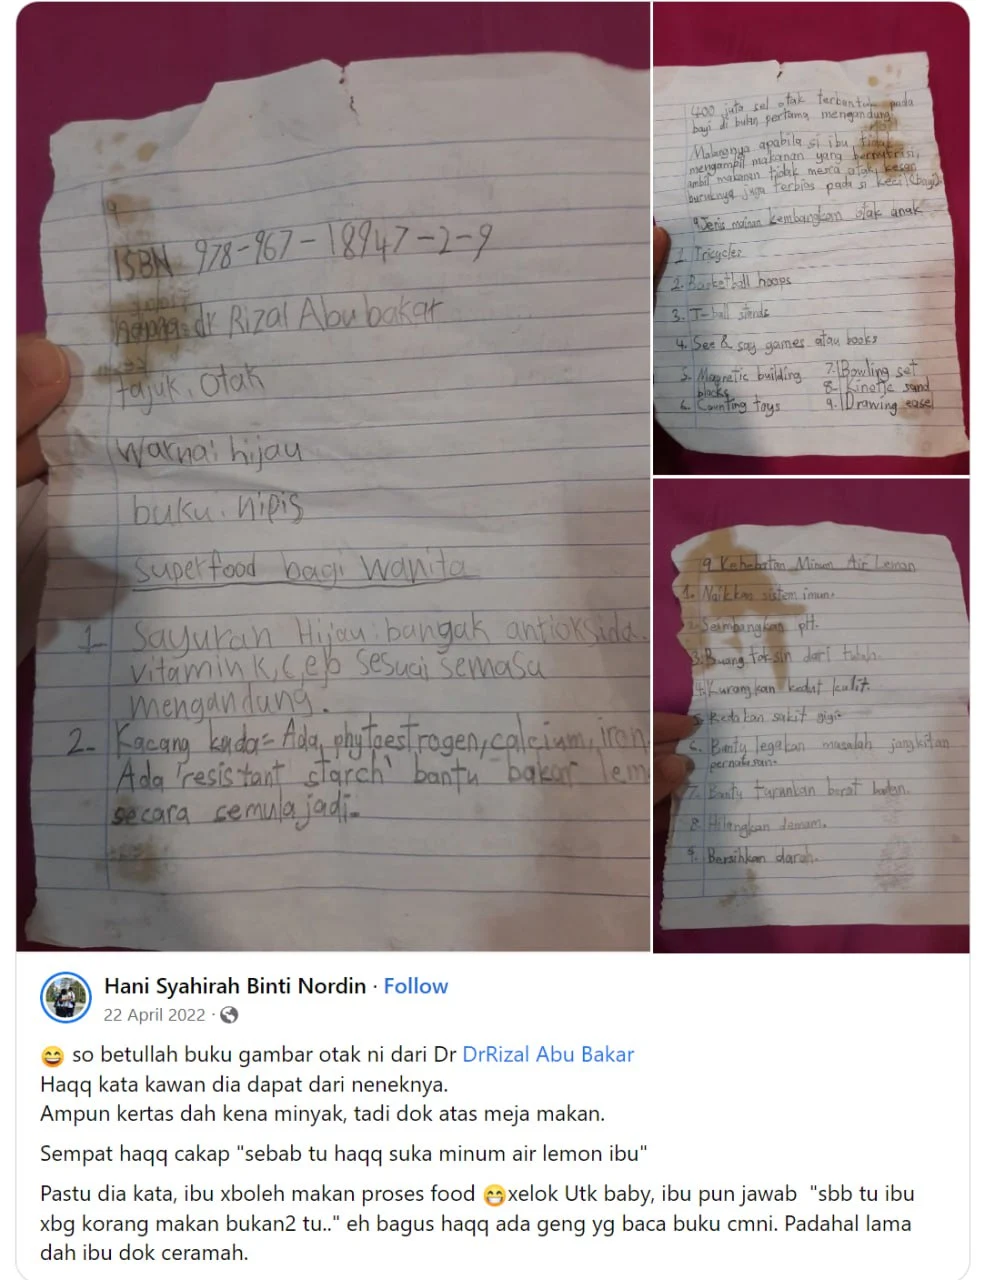 ISBN 978-967-18947-2-9
nama: dr Rizal Abu bakar
tajuk: Otak
Warna: hijau
buku: nipis
Superfood bagi Wanita
1. Sayuran Hijau: bangak antioksida.
vitamin K, C, e, b sesuai semasa
mengandung.
2. Kacang kuda= Ada phytoestrogen, calcium, iron
Ada 'resistant starch' bantu bakar lem
secara semula jadi.
400 juta sel otak terbentuk pada
bayi di bulan pertama mengandung.
Malangnya apabila si ibu tidak
mengambil makanan yang bernutrisi,
ambil makanan tidak kesan
buruknya juga terbias pada si kecil (bayi).
9 Jenis mainan kembangkan otak anak
1. Tricycles
2. Basketball hoops
3. T-ball stands
4. See & say games atau books
5. Magnetic building
blocks
6. Counting toys
7. Bowling set
8. Kinetic sand
9. Drawing easel
9 Kehebatan Minum Air Lemon
1. Naikkan sistem imun.
2. Seimbangkan pH.
3. Buang toksin dari tubuh.
4. Kurangkan kedut kulit.
5. Redakan sakit gigi.
6. Bantu legakan masalah jangkitan
pernafasan.
7. Bantu turunkan berat badan.
8. Hilangkan demam.
9. Bersihkan darah.
Hani Syahirah Binti Nordin · Follow
22 April 2022 ·
😄 so betullah buku gambar otak ni dari Dr DrRizal Abu Bakar
Haqq kata kawan dia dapat dari neneknya.
Ampun kertas dah kena minyak, tadi dok atas meja makan.
Sempat haqq cakap "sebab tu haqq suka minum air lemon ibu"
Pastu dia kata, ibu xboleh makan proses food 😄xelok Utk baby, ibu pun jawab "sbb tu ibu
xbg korang makan bukan2 tu.." eh bagus haqq ada geng yg baca buku cmni. Padahal lama
dah ibu dok ceramah.